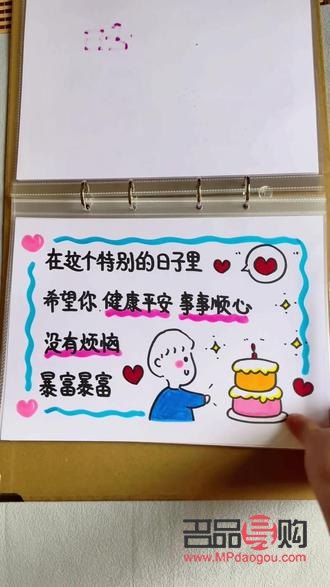 在这个特别的日子里
希望你 健康平安 事事顺心
没有烦恼
暴富暴富
名品导购
www.MPdaogou.com